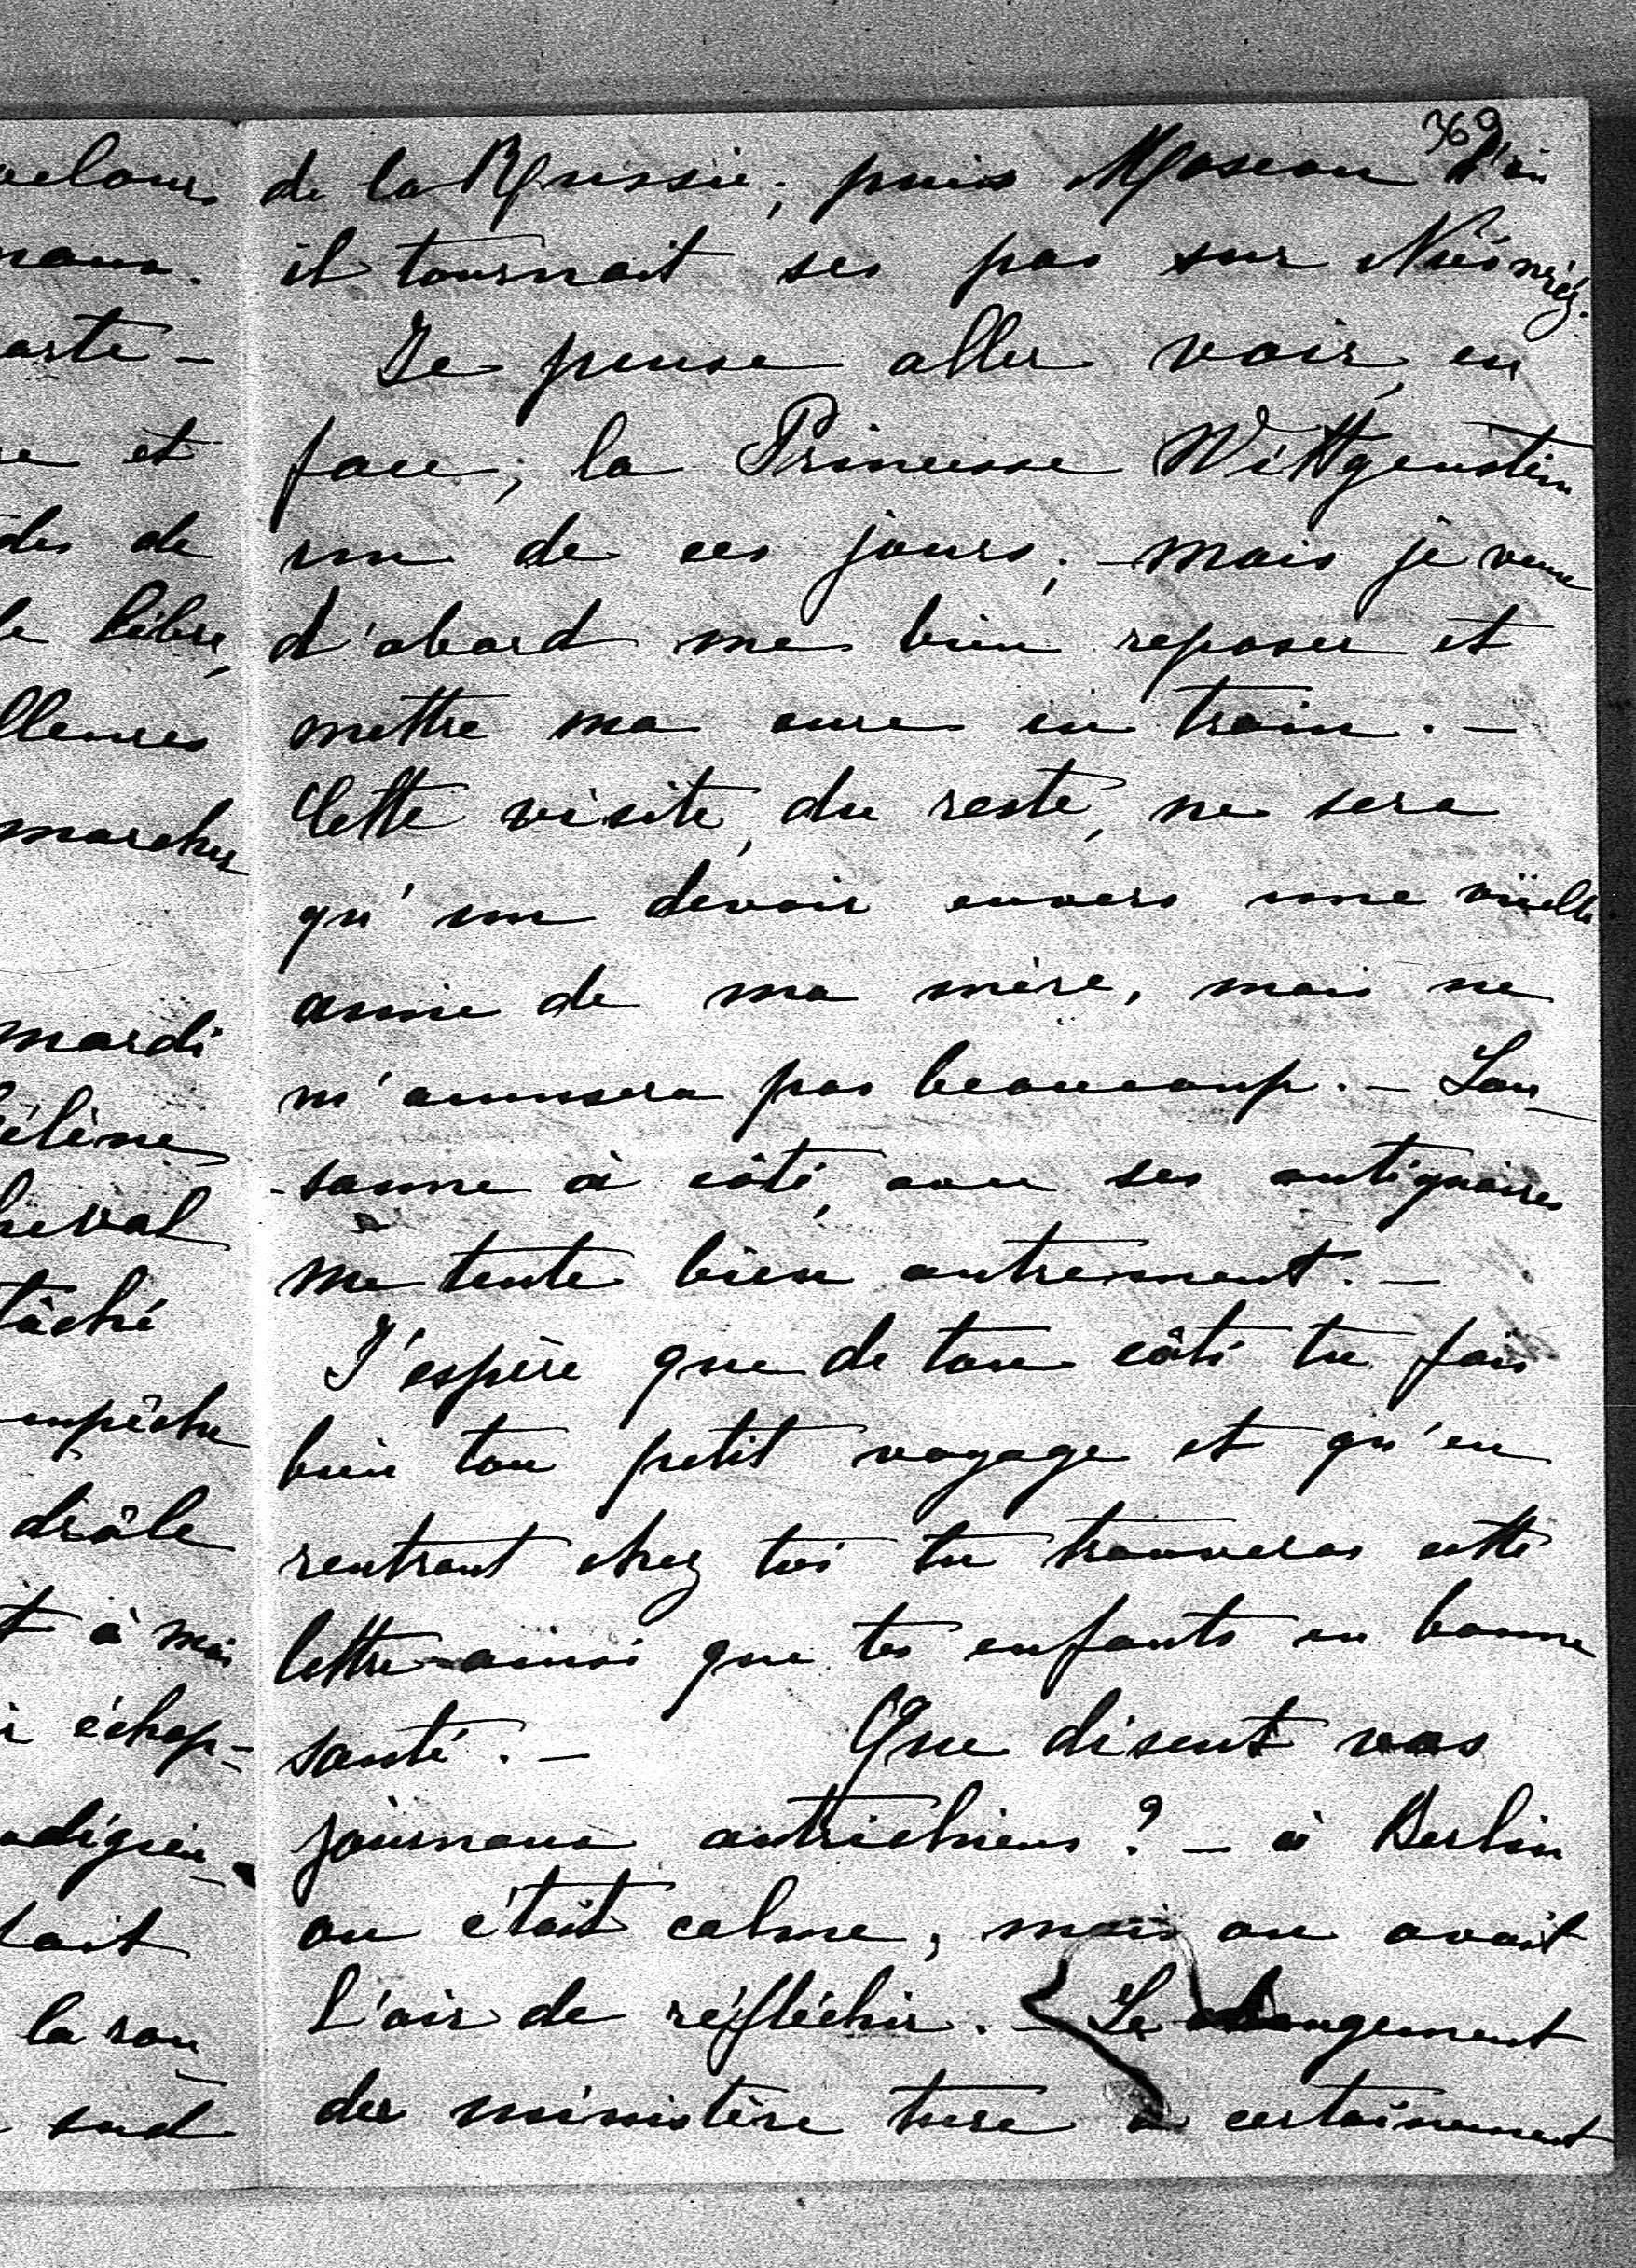 369
de la Russie; puis Moscou d'où
il tournait ses pas sur Niésnież.
Je pense aller voir, en
face, la Princesse Wittgenstein
un de ces jours; mais je veux
d'abord me bien reposer et
mettre ma cure en train. —
Cette visite, du reste, ne sera
qu'un devoir envers une vieille
amie de ma mère, mais ne
m'amusera pas beaucoup. — Lau
-sanne à côté, avec ses antiquaires
me tente bien autrement. —
J'espère que de ton côté tu fais
bien ton petit voyage et qu'en
rentrant chez toi tu trouveras cette
lettre ainsi que tes enfants en bonne
santé. — Que disent vos
journaux autrichiens? — à Berlin
on était calme, mais on avait
l'air de réfléchir. — Le changement
du ministère turc a certainement
marcher
mardi
élène
tâché
drôle
t à moi
échap-
la rou
sud